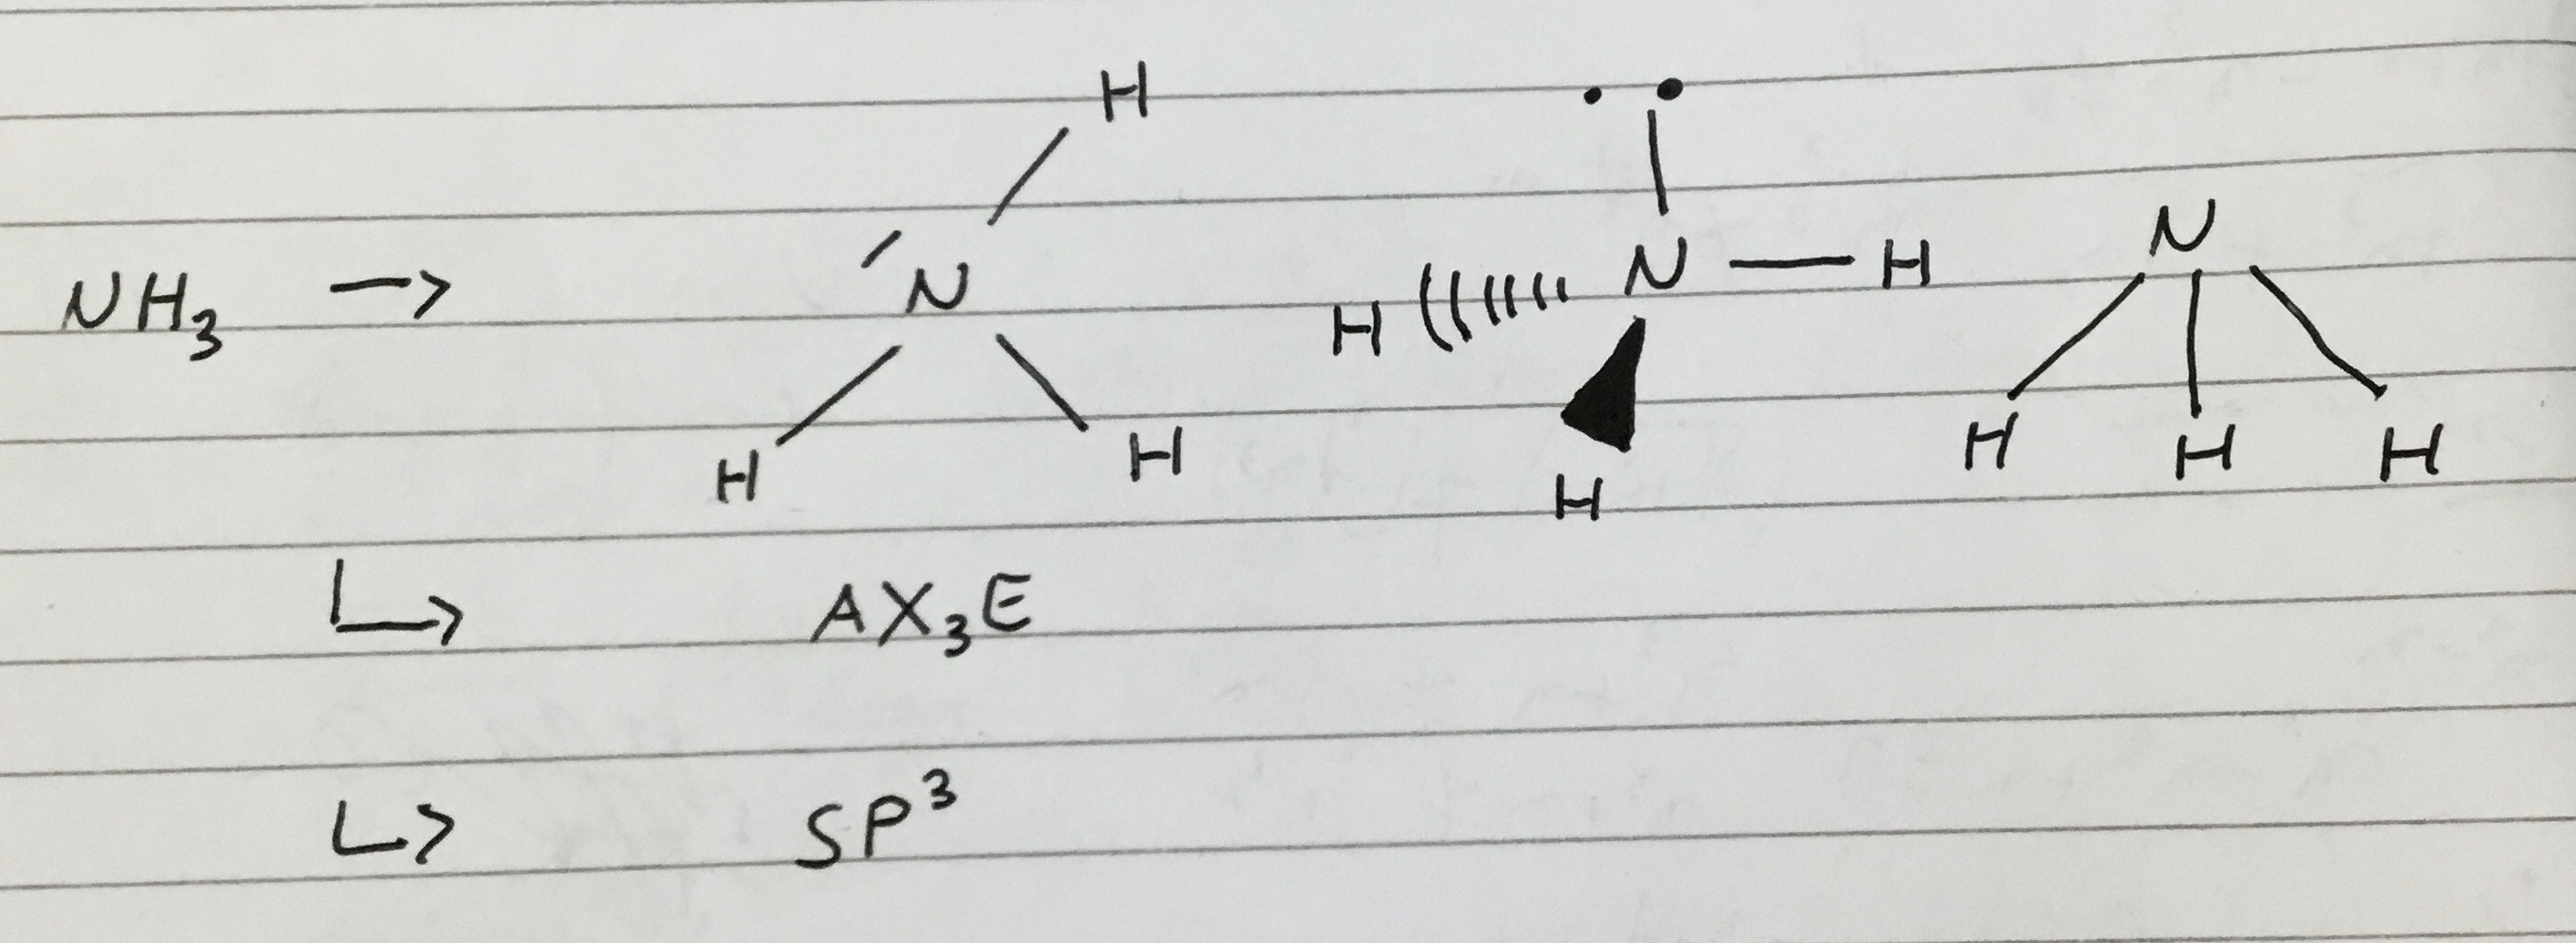 NH₃ → H
N
H H
N — H
H
H
N
H H H
↳ AX₃E
↳ SP³